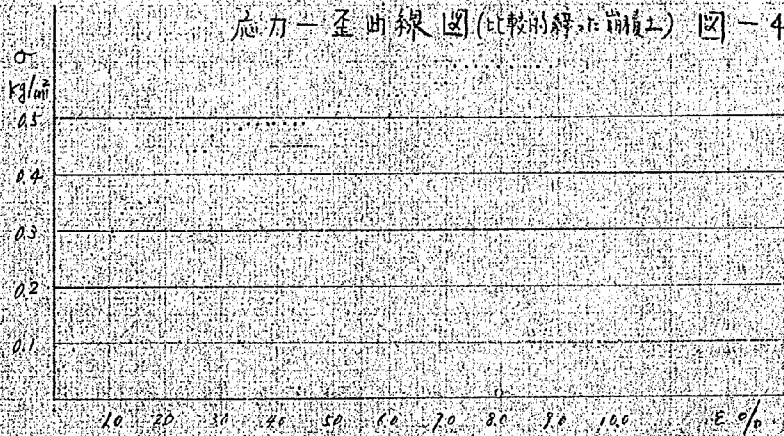 応力－歪曲線図(比較的締った崩積土) 図－4
σ
kg/cm²
0.5
0.4
0.3
0.2
0.1
1.0 2.0 3.0 4.0 5.0 6.0 7.0 8.0 9.0 10.0 ε %